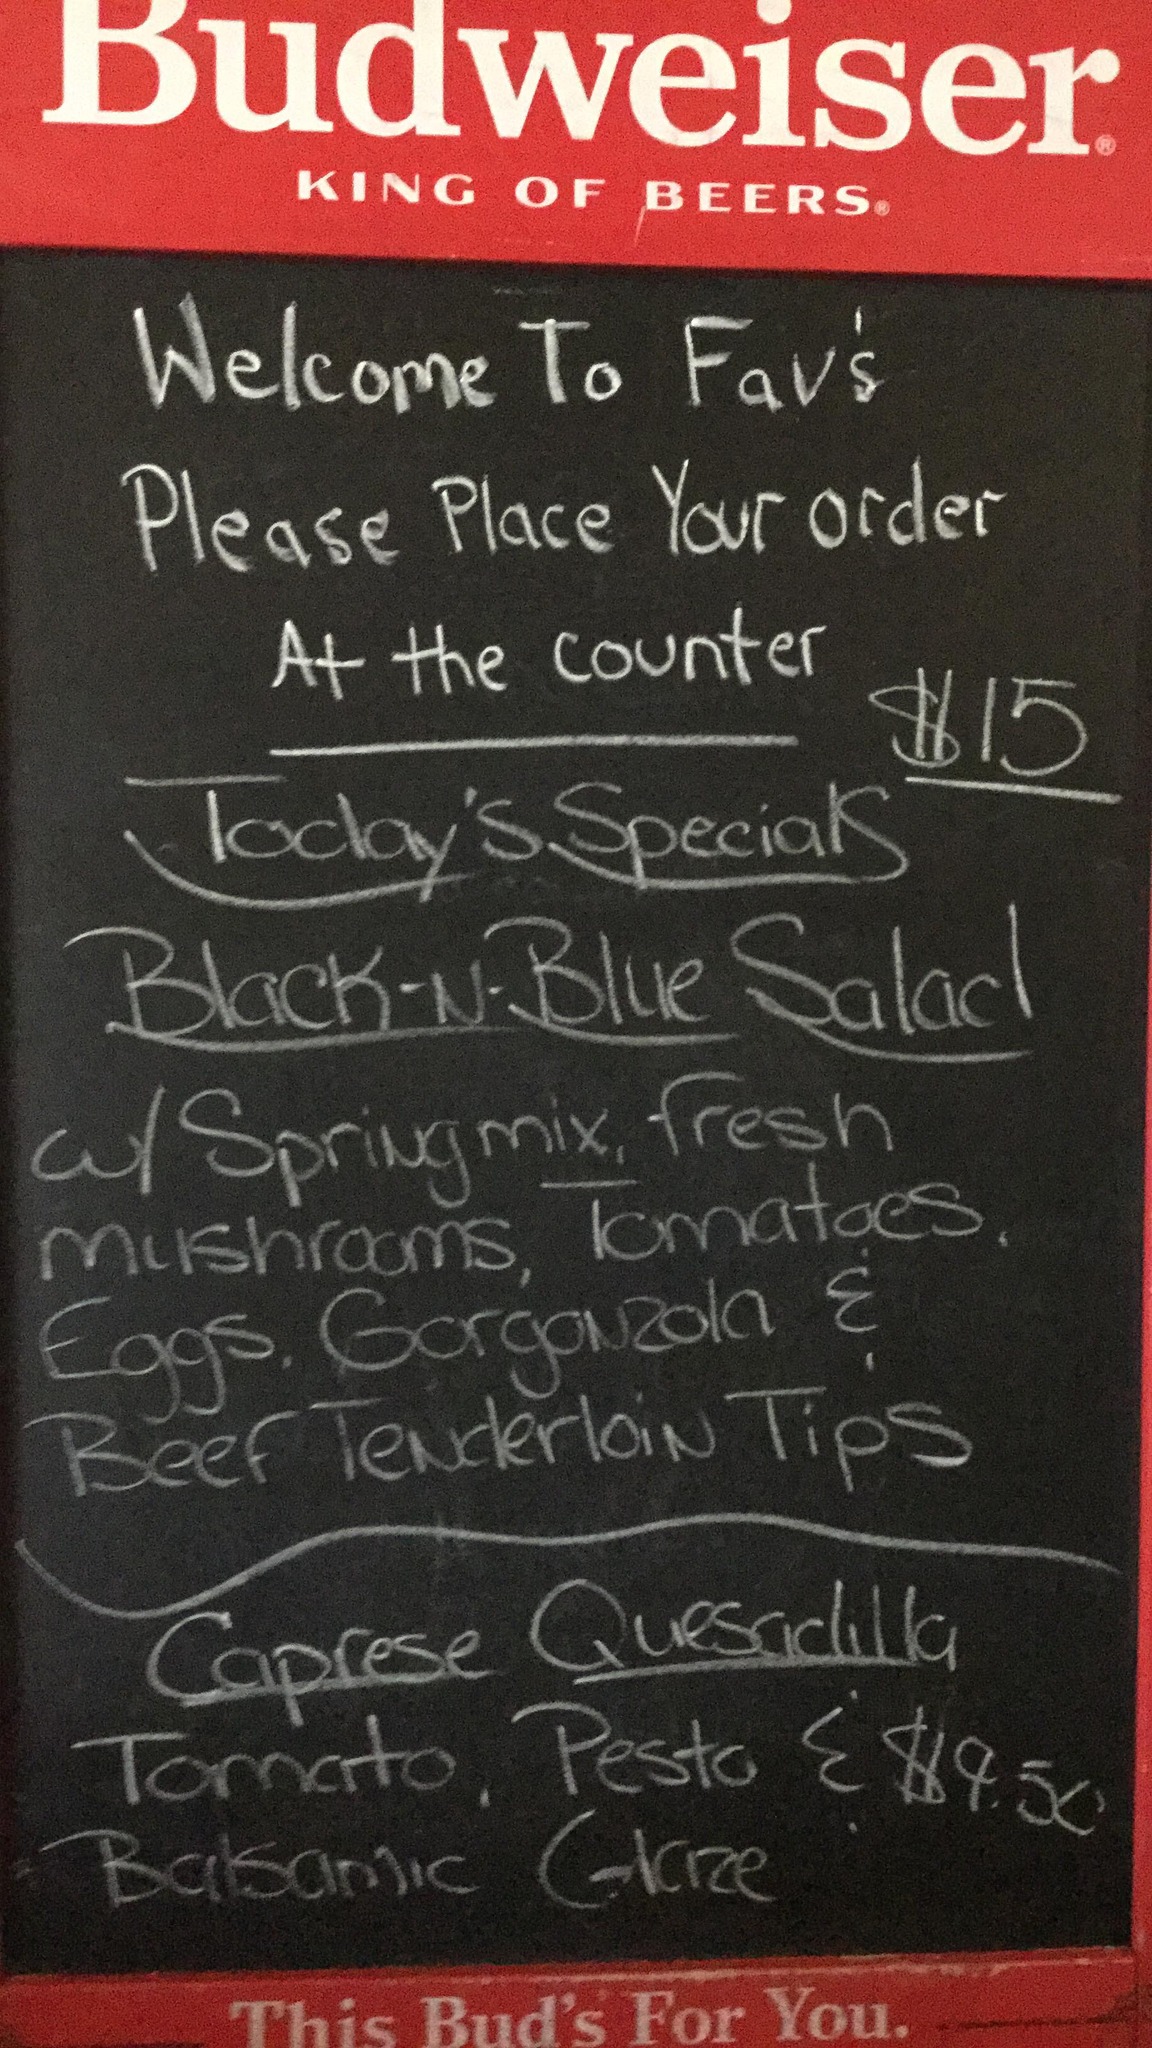 Budweiser®
KING OF BEERS®
Welcome To Fav's
Please Place Your order
At the counter
$15
Today's Specials
Black-N-Blue Salad
w/ Spring mix, fresh
mushrooms, Tomatoes,
Eggs, Gorgonzola &
Beef Tenderloin Tips
Caprese Quesadilla
Tomato, Pesto & $9.50
Balsamic Glaze
This Bud's For You.